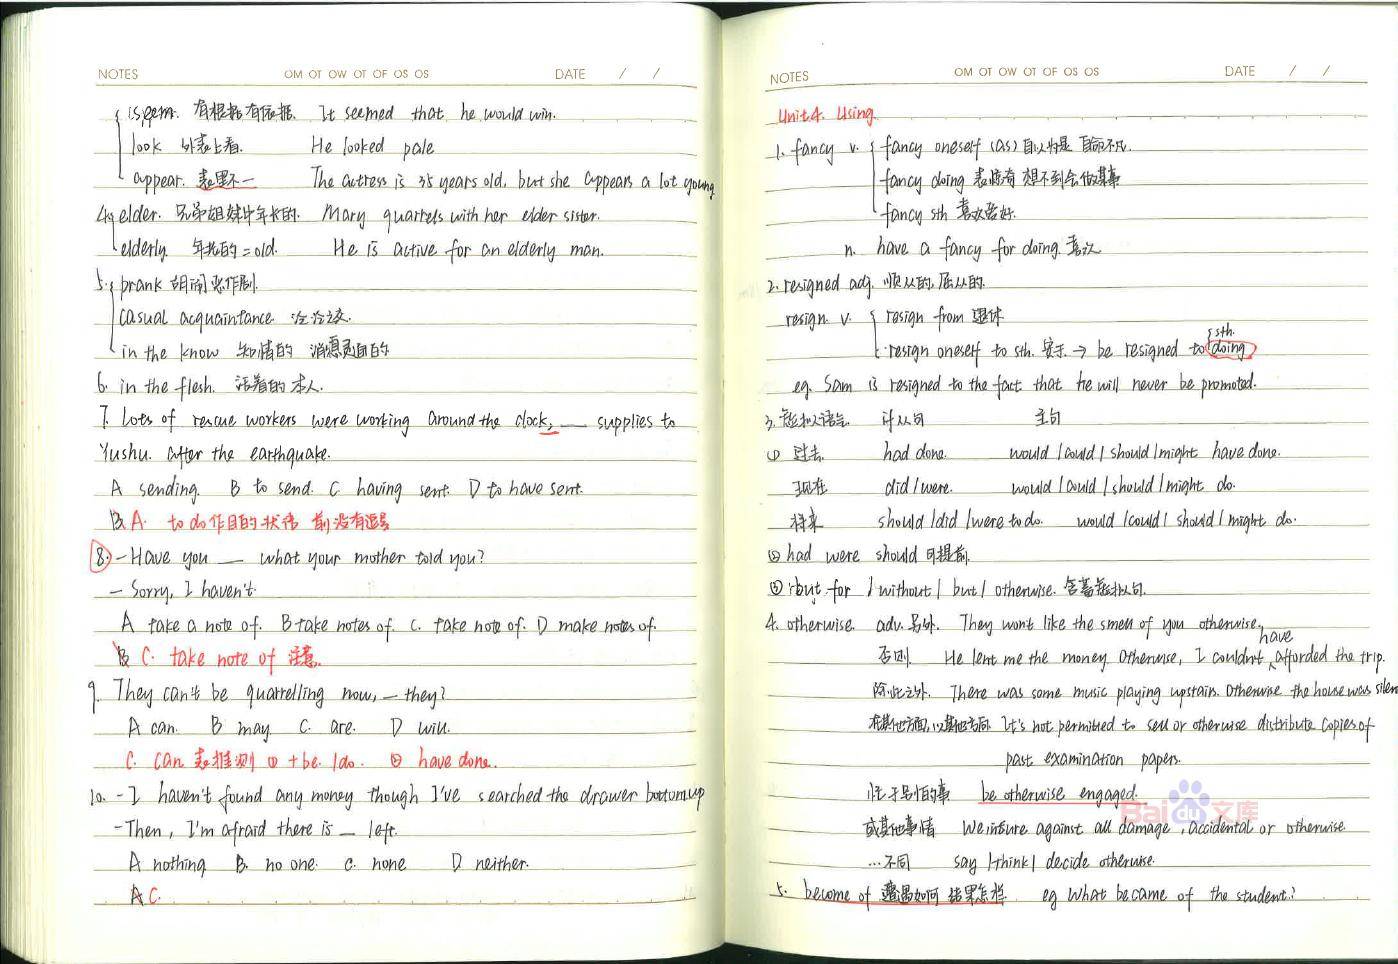 NOTES OM OT OW OT OF OS OS DATE / /
seem. 有根据有依据. It seemed that he would win.
look 外表上看. He looked pale
appear. 表里不一 The actress is 35 years old, but she appears a lot young
4. elder. 兄弟姐妹中年长的. Mary quarrels with her elder sister.
elderly 年老的 = old. He is active for an elderly man.
5. prank 胡闹恶作剧.
casual acquaintance. 泛泛之交.
in the know 知情的 消息灵通的
6. in the flesh. 活着的 本人.
7. Lots of rescue workers were working around the clock, __ supplies to
Yushu. after the earthquake.
A sending. B to send. C having sent. D to have sent.
B A. to do 作目的状语 前没有逗号
8. - Have you __ what your mother told you?
- Sorry, I haven't.
A take a note of. B take notes of. C. take note of. D make notes of.
B C. take note of 注意.
9. They can't be quarrelling now, __ they?
A can. B may C. are. D will.
C. can 表推测 ① + be. / do. ② have done.
10. - I haven't found any money though I've searched the drawer bottom up
- Then, I'm afraid there is __ left.
A nothing B. no one. C. none D neither.
A C.
NOTES OM OT OW OT OF OS OS DATE / /
Unit 4. Using
1. fancy v. fancy oneself (as) 自以为是 自命不凡.
fancy doing 表惊奇 想不到会做某事
fancy sth 喜欢爱好.
n. have a fancy for doing. 喜欢
2. resigned adj. 顺从的, 屈从的.
resign. v. resign from 退休
sth.
resign oneself to sth. 安于 → be resigned to doing
eg. Sam is resigned to the fact that he will never be promoted.
3. 虚拟语气. if从句 主句
① 过去. had done. would / could / should / might have done.
现在 did / were. would / could / should / might do.
将来 should / did / were to do. would / could / should / might do.
② had were should 可提前.
③ but for / without / but / otherwise. 含蓄虚拟句.
4. otherwise. adv. 另外. They wont like the smell of you otherwise.
have
否则. He lent me the money. Otherwise, I couldn't afforded the trip.
除此之外. There was some music playing upstairs. Otherwise the house was silen
在其他方面, 以其他方向. It's not permitted to sell or otherwise distribute copies of
past examination papers.
忙于别的事 be otherwise engaged.
或其他事情 We insure against all damage, accidental or otherwise.
...不同 say / think / decide otherwise.
5. become of 遭遇如何 结果怎样. eg What became of the student?
Baidu 文库